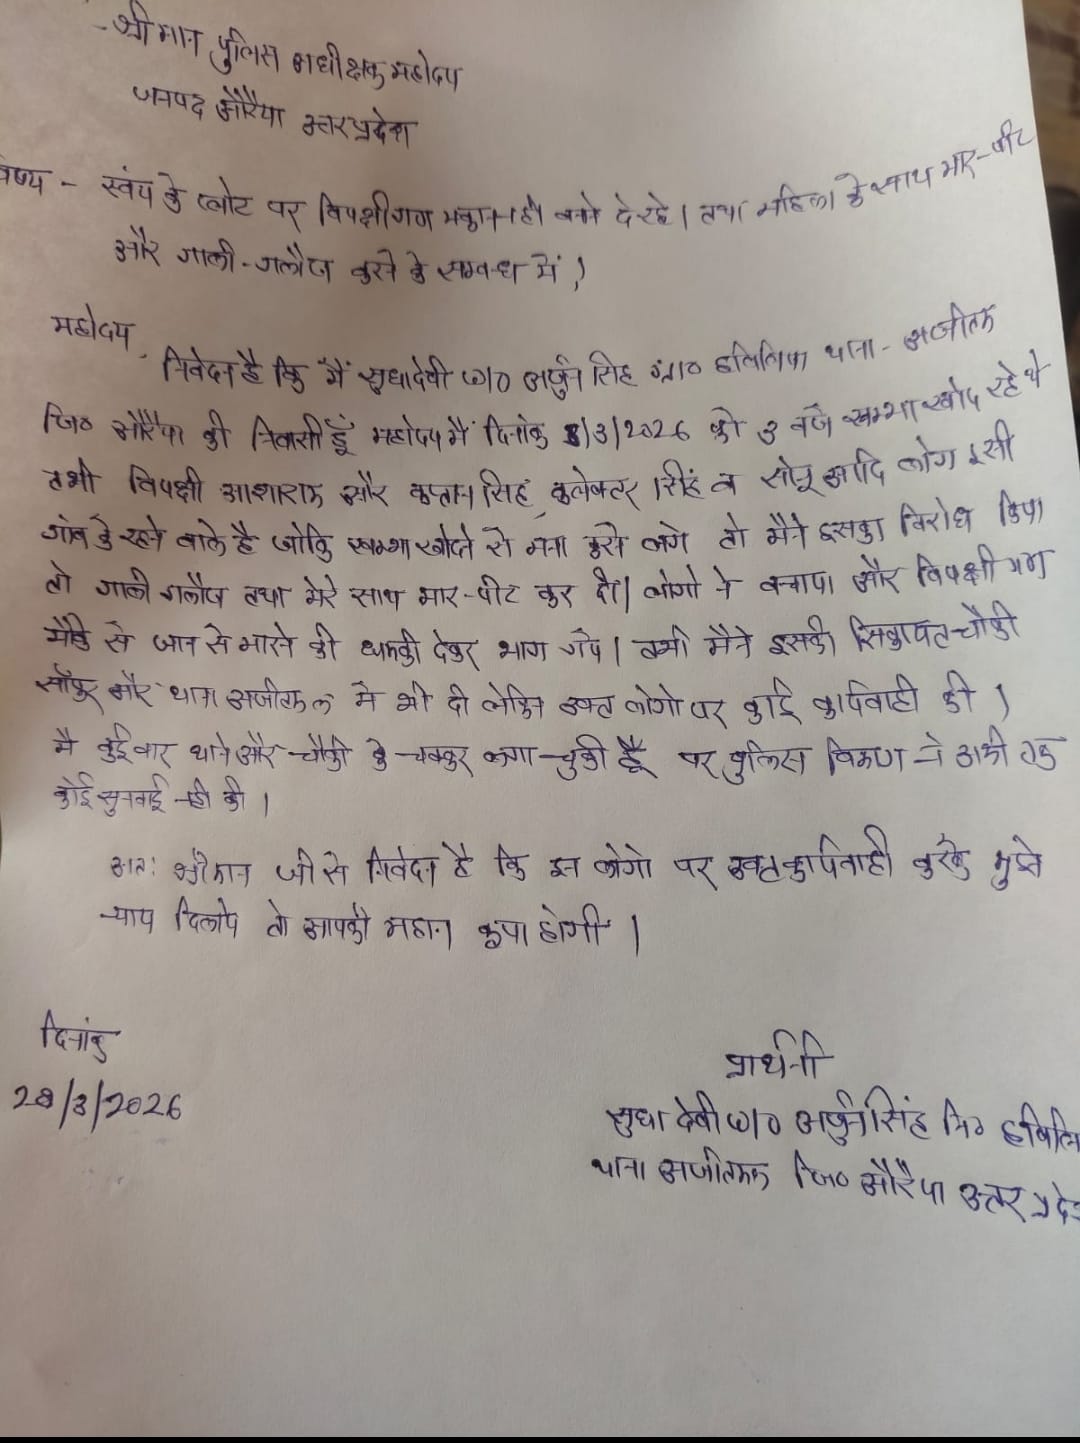 श्रीमान पुलिस अधीक्षक महोदय
जनपद औरैया उत्तर प्रदेश
विषय - स्वंय के प्लोट पर विपक्षीगण मकान नही बनने दे रहे। तथा महिला के साथ मार-पीट
और गाली-गलौज करने के सम्बन्ध में।
महोदय,
निवेदन है कि मैं सुधादेवी w/o अर्जुन सिंह ग्रा० थाना - अजीतमल
जि० औरैया की निवासी हूँ महोदय मैं दिनांक 8/3/2026 को 3 बजे खम्भा खोद रहे थे
तभी विपक्षी आशाराम और कप्तान सिंह, कलेक्टर सिंह व सोनू आदि लोग इसी
गांव के रहने वाले है जोकि खम्भा खोदने से मना करने लगे तो मैने इसका विरोध किया
तो गाली गलौज तथा मेरे साथ मार-पीट कर दी। लोगो ने बचाया और विपक्षी गण
मौके से जान से मारने की धमकी देकर भाग गये। तभी मैने इसकी सिकायत चौकी
और थाना अजीतमल मे भी दी लेकिन उक्त लोगो पर कोई कार्यवाही की।
मै कईबार थाने और चौकी के चक्कर लगा चुकी हूँ पर पुलिस विभाग ने अभी तक
कोई सुनवाई नही की।
अतः श्रीमान जी से निवेदन है कि इन लोगो पर सख्त कार्यवाही करके मुझे
न्याय दिलाये तो आपकी महान कृपा होगी।
दिनांक
28/3/2026
प्रार्थनी
सुधा देवी w/o अर्जुन सिंह नि०
थाना अजीतमल जि० औरैया उत्तर प्रदे